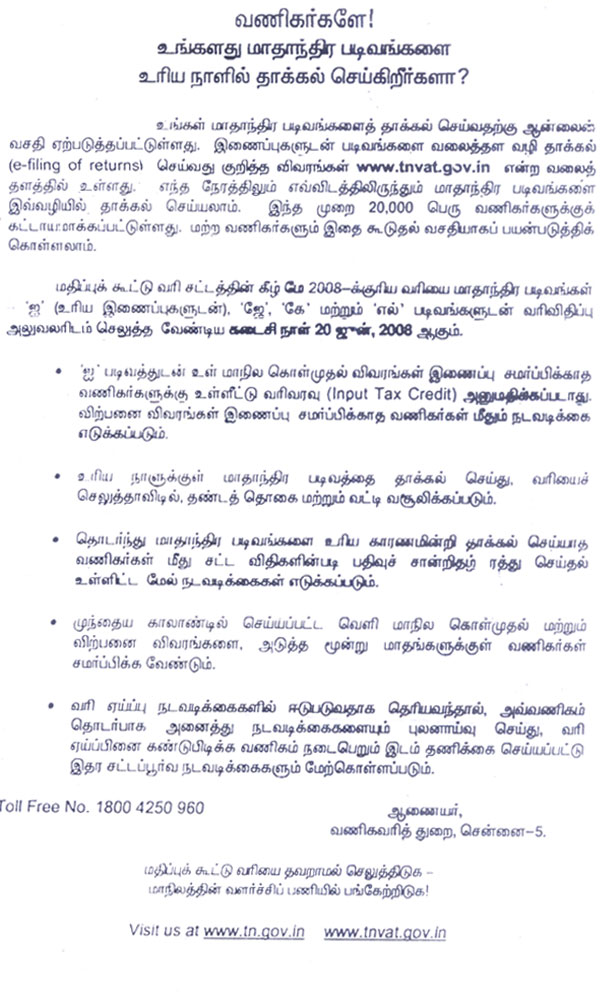 வணிகர்களே!
உங்களது மாதாந்திர படிவங்களை
உரிய நாளில் தாக்கல் செய்கிறீர்களா?
உங்கள் மாதாந்திர படிவங்களைத் தாக்கல் செய்வதற்கு ஆன்லைன்
வசதி ஏற்படுத்தப்பட்டுள்ளது. இணைப்புகளுடன் படிவங்களை வலைத்தள வழி தாக்கல்
(e-filing of returns) செய்வது குறித்த விவரங்கள் www.tnvat.gov.in என்ற வலைத்
தளத்தில் உள்ளது. எந்த நேரத்திலும் எவ்விடத்திலிருந்தும் மாதாந்திர படிவங்களை
இவ்வழியில் தாக்கல் செய்யலாம். இந்த முறை 20,000 பெரு வணிகர்களுக்குக்
கட்டாயமாக்கப்பட்டுள்ளது. மற்ற வணிகர்களும் இதை கூடுதல் வசதியாகப் பயன்படுத்திக்
கொள்ளலாம்.
மதிப்புக் கூட்டு வரி சட்டத்தின் கீழ் மே 2008–க்குரிய வரியை மாதாந்திர படிவங்கள்
'ஐ' (உரிய இணைப்புகளுடன்), 'ஜே', 'கே' மற்றும் 'எல்' படிவங்களுடன் வரிவிதிப்பு
அலுவலரிடம் செலுத்த வேண்டிய கடைசி நாள் 20 ஜுன், 2008 ஆகும்.
• 'ஐ' படிவத்துடன் உள் மாநில கொள்முதல் விவரங்கள் இணைப்பு சமர்ப்பிக்காத
வணிகர்களுக்கு உள்ளீட்டு வரிவரவு (Input Tax Credit) அனுமதிக்கப்படாது.
விற்பனை விவரங்கள் இணைப்பு சமர்ப்பிக்காத வணிகர்கள் மீதும் நடவடிக்கை
எடுக்கப்படும்.
• உரிய நாளுக்குள் மாதாந்திர படிவத்தை தாக்கல் செய்து, வரியைச்
செலுத்தாவிடில், தண்டத் தொகை மற்றும் வட்டி வசூலிக்கப்படும்.
• தொடர்ந்து மாதாந்திர படிவங்களை உரிய காரணமின்றி தாக்கல் செய்யாத
வணிகர்கள் மீது சட்ட விதிகளின்படி பதிவுச் சான்றிதழ் ரத்து செய்தல்
உள்ளிட்ட மேல் நடவடிக்கைகள் எடுக்கப்படும்.
• முந்தைய காலாண்டில் செய்யப்பட்ட வெளி மாநில கொள்முதல் மற்றும்
விற்பனை விவரங்களை, அடுத்த மூன்று மாதங்களுக்குள் வணிகர்கள்
சமர்ப்பிக்க வேண்டும்.
• வரி ஏய்ப்பு நடவடிக்கைகளில் ஈடுபடுவதாக தெரியவந்தால், அவ்வணிகம்
தொடர்பாக அனைத்து நடவடிக்கைகளையும் புலனாய்வு செய்து, வரி
ஏய்ப்பினை கண்டுபிடிக்க வணிகம் நடைபெறும் இடம் தணிக்கை செய்யப்பட்டு
இதர சட்டப்பூர்வ நடவடிக்கைகளும் மேற்கொள்ளப்படும்.
Toll Free No. 1800 4250 960
ஆணையர்,
வணிகவரித் துறை, சென்னை–5.
மதிப்புக் கூட்டு வரியை தவறாமல் செலுத்திடுக –
மாநிலத்தின் வளர்ச்சிப் பணியில் பங்கேற்றிடுக!
Visit us at www.tn.gov.in www.tnvat.gov.in